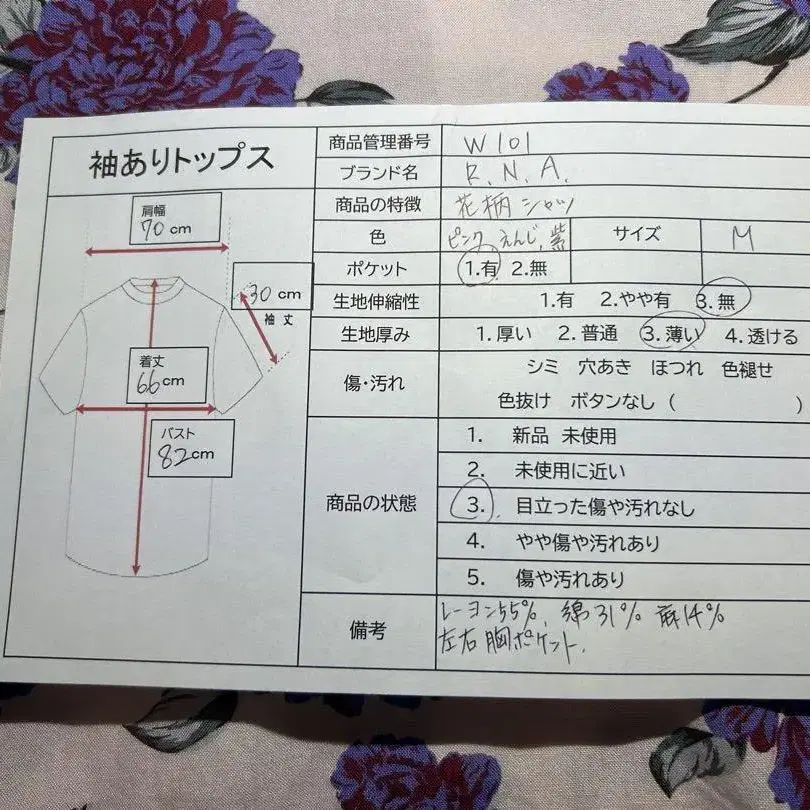 袖ありトップス
肩幅
70 cm
30 cm
袖 丈
着丈
66cm
バスト
82cm
商品管理番号 W101
ブランド名 R.N.A.
商品の特徴 花柄シャツ
色 ピンク、えんじ、紫 サイズ M
ポケット 1.有 2.無
生地伸縮性 1.有 2.やや有 3.無
生地厚み 1.厚い 2.普通 3.薄い 4.透ける
傷・汚れ シミ 穴あき ほつれ 色褪せ
色抜け ボタンなし ( )
商品の状態
1. 新品 未使用
2. 未使用に近い
3. 目立った傷や汚れなし
4. やや傷や汚れあり
5. 傷や汚れあり
備考 レーヨン55%、綿31% 麻14%
左右胸ポケット.